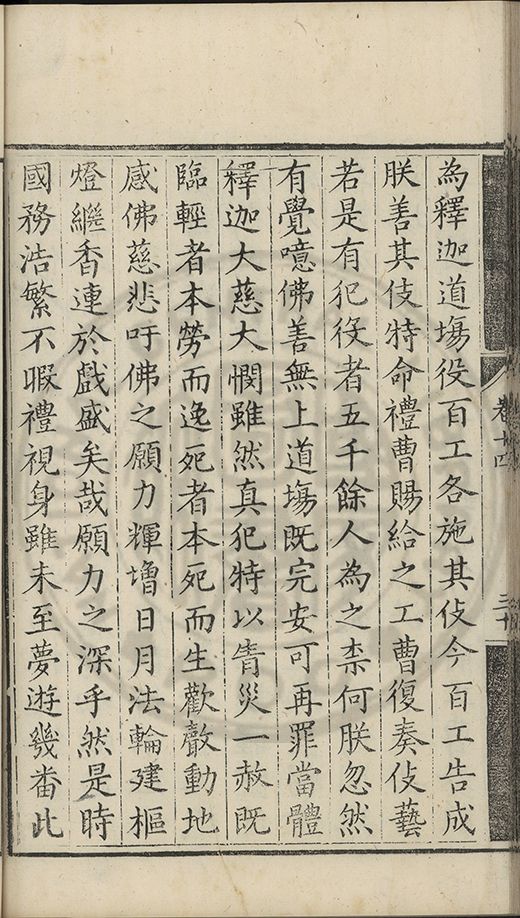 為釋迦道塲役百工各施其伎今百工告成
朕善其伎特命禮曹賜給之工曹復奏伎藝
若是有犯役者五千餘人為之柰何朕忽然
有覺噫佛善無上道塲既完安可再罪當體
釋迦大慈大憫雖然真犯特以眚災一赦既
臨輕者本勞而逸死者本死而生歡聲動地
感佛慈悲吁佛之願力輝增日月法輪建樞
燈繼香連於戲盛矣哉願力之深乎然是時
國務浩繁不暇禮視身雖未至夢遊幾番此
卷十四